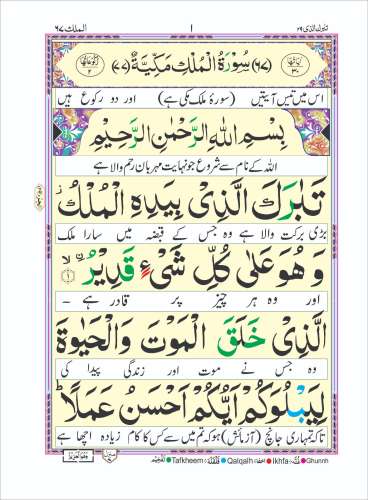 تبٰرك الذی ٢٩ ١ الملك ٦٧
(٦٧) سُوْرَةُ الْمُلْكِ مَكِّيَّةٌ (٧٧)
اس میں تیس آیتیں (سورۂ ملک مکی ہے) اور دو رکوع ہیں
بِسْمِ اللهِ الرَّحْمٰنِ الرَّحِيْمِ
اللہ کے نام سے شروع جو نہایت مہربان رحم والا ہے
تَبٰرَكَ الَّذِىْ بِيَدِهِ الْمُلْكُ
بڑی برکت والا ہے وہ جس کے قبضہ میں سارا ملک
وَ هُوَ عَلٰى كُلِّ شَىْءٍ قَدِيْرُ ۙ ١
اور وہ ہر چیز پر قادر ہے ۔
الَّذِىْ خَلَقَ الْمَوْتَ وَالْحَيٰوةَ
وہ جس نے موت اور زندگی پیدا کی
لِيَبْلُوَكُمْ اَيُّكُمْ اَحْسَنُ عَمَلًا ؕ
تاکہ تمہاری جانچ (آزمائش) ہو کہ تم میں سے کس کا کام زیادہ اچھا ہے
Tafkheem Qalqalh Ikhfa Ghunnh